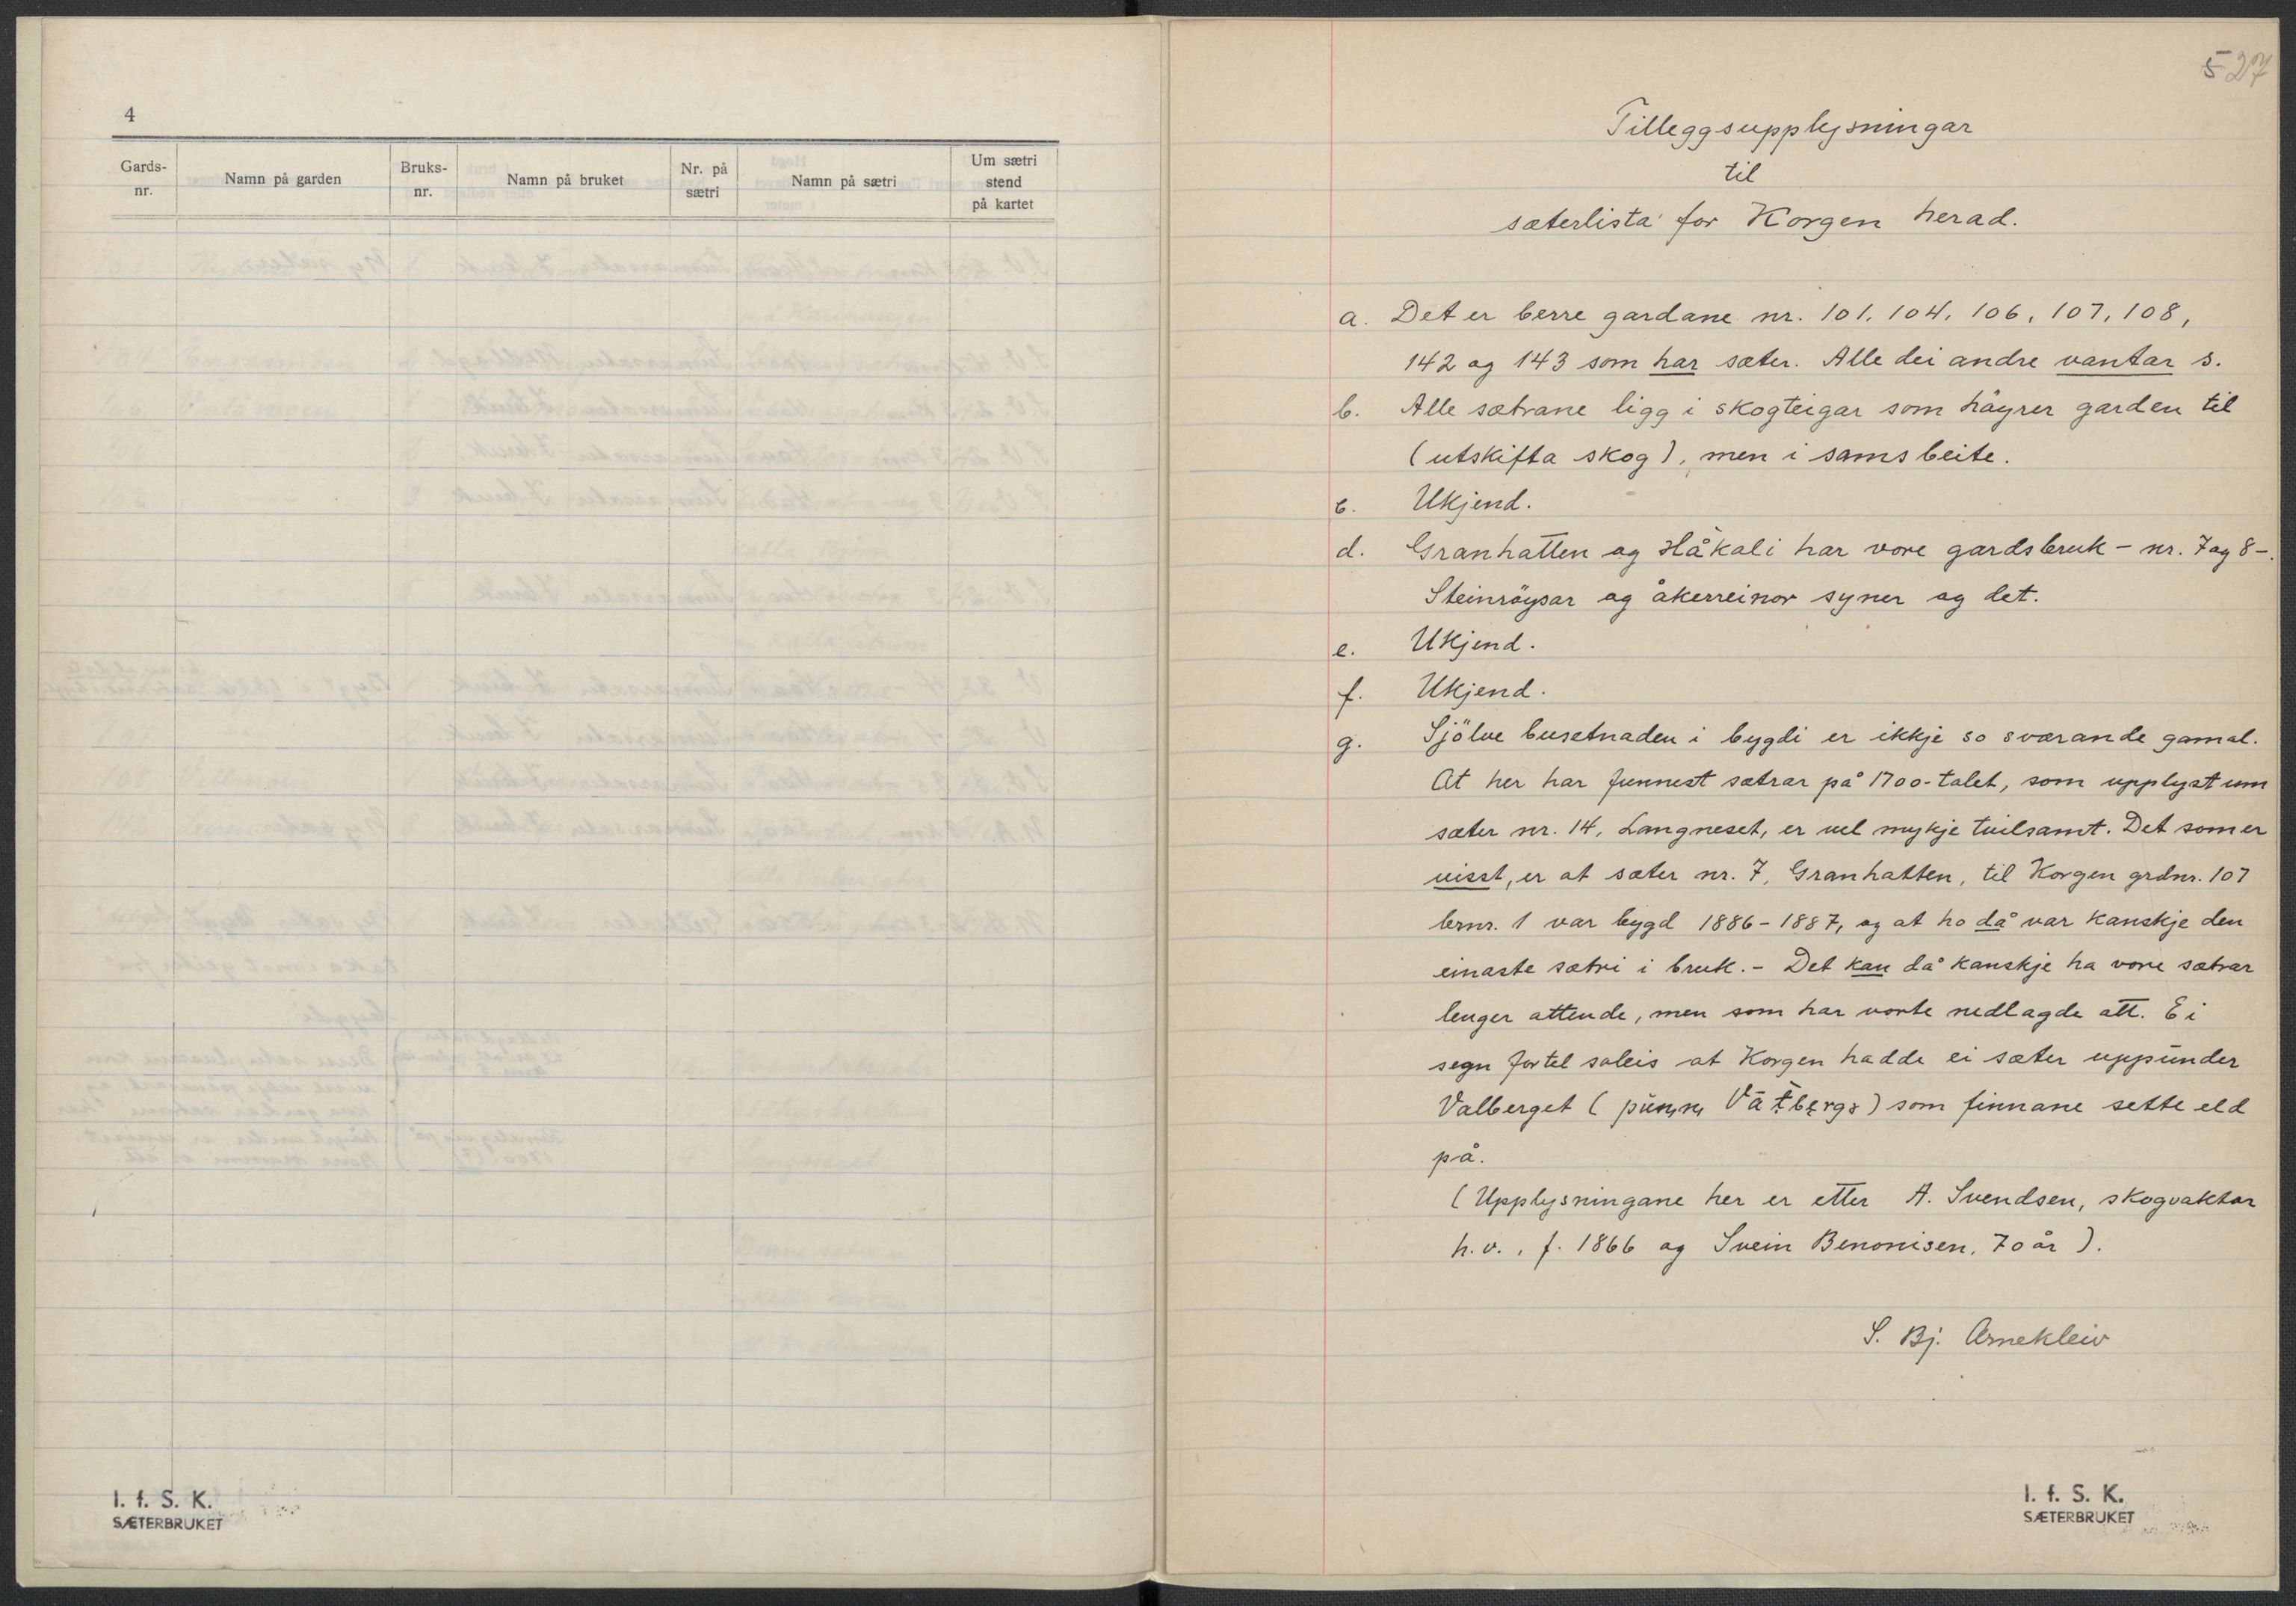 4
Gards-
nr.
Namn på garden
Bruks-
nr.
Namn på bruket
Nr. på
sætri
Namn på sætri
Um sætri
stend
på kartet
I. f. S. K.
SÆTERBRUKET
527
Tilleggsupplysningar
til
sæterlista for Korgen herad.
a. Det er berre gardane nr. 101, 104, 106, 107, 108,
142 og 143 som har sæter. Alle dei andre vantar s.
b. Alle sætrane ligg i skogteigar som höyrer garden til
(utskifta skog), men i samsbeite.
c. Ukjend.
d. Granhatten og Håkali har vore gardsbruk - nr. 7 og 8 -.
Steinröysar og åkerreinor syner og det.
e. Ukjend.
f. Ukjend.
g. Sjölve busetnaden i bygdi er ikkje so sværande gamal.
At her har funnest sætrar på 1700-talet, som upplyst um
sæter nr. 14, Langneset, er vel mykje tvilsamt. Det som er
visst, er at sæter nr. 7, Granhatten, til Korgen grdnr. 107
brnr. 1 var bygd 1886-1887, og at ho då var kanskje den
einaste sætri i bruk. - Det kan då kanskje ha vore sætrar
lenger attende, men som har vorte nedlagde att. Ei
segn fortel soleis at Korgen hadde ei sæter uppunder
Valberget ( ) som finnane sette eld
på.
(Upplysningane her er etter A. Svendsen, skogvaktar
h.v., f. 1866 og Svein Benonisen, 70 år ).
S. Bj. Arnekleiv
I. f. S. K.
SÆTERBRUKET